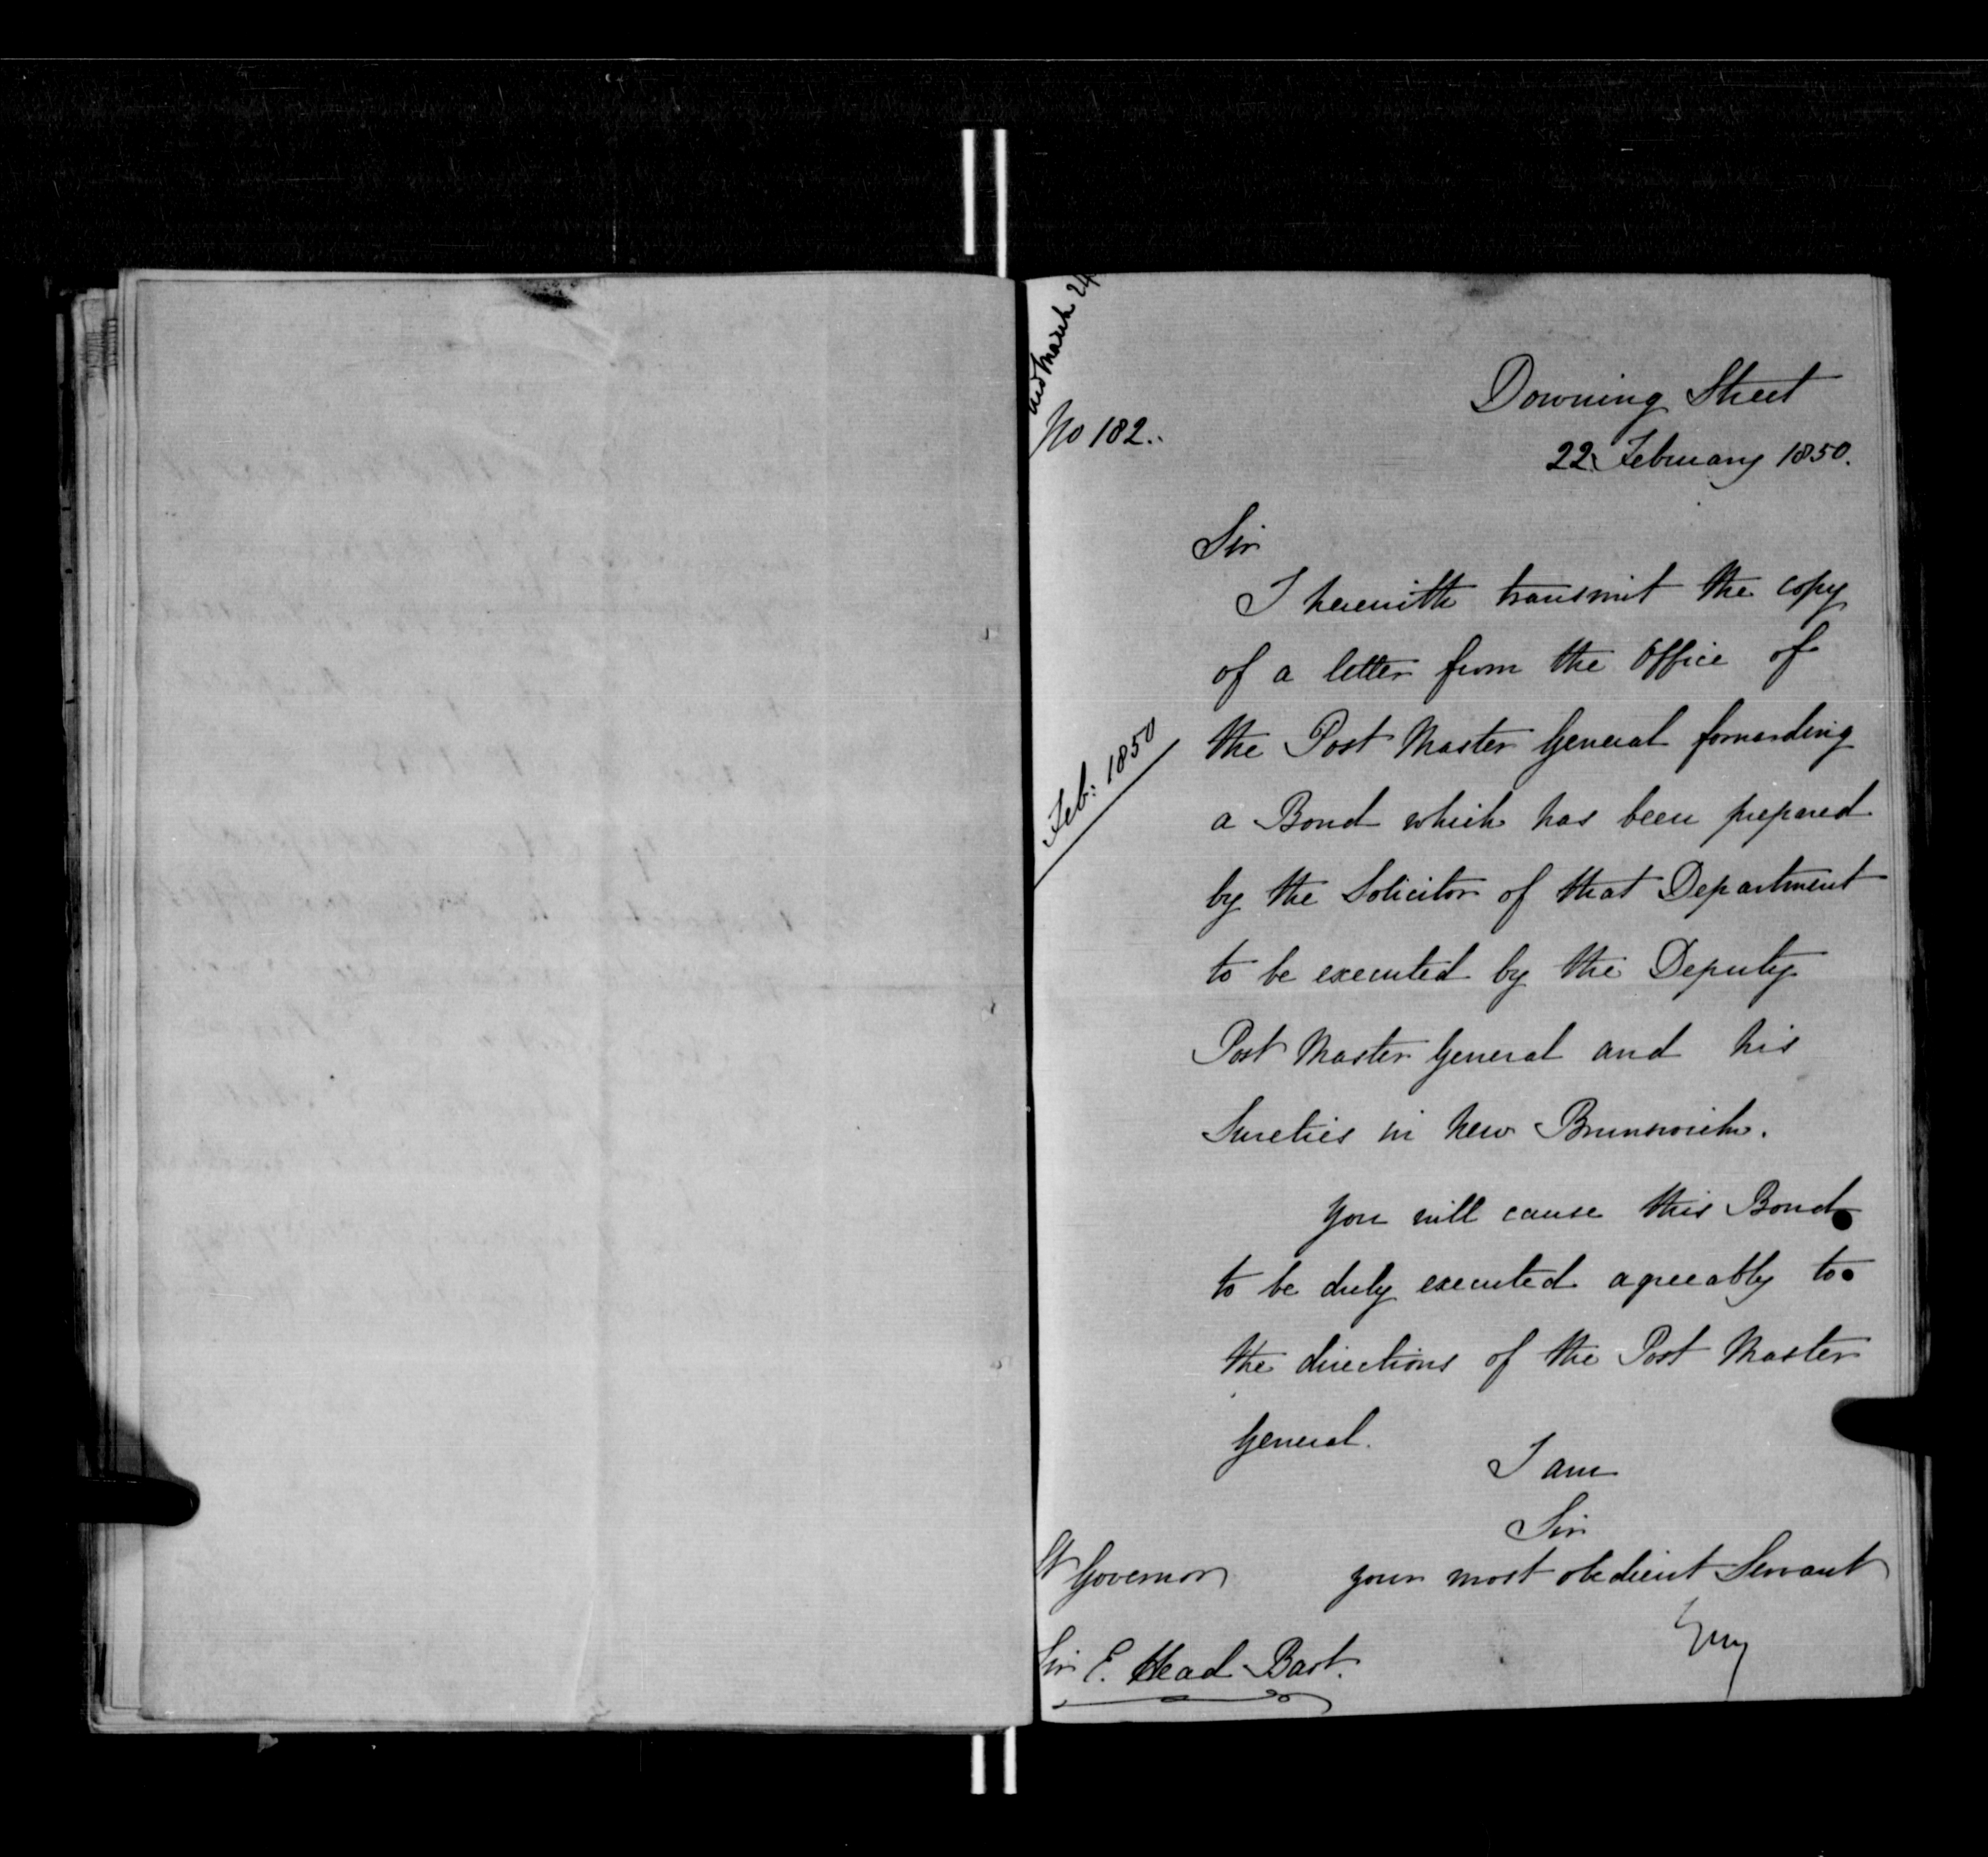 March 24
No 182.
Downing Street
22 February 1850.
Sir
I herewith transmit the copy
of a letter from the Office of
the Post Master General forwarding
Feb: 1850
a Bond which has been prepared
by the Solicitor of that Department
to be executed by the Deputy
Post Master General and his
Sureties in New Brunswick.
You will cause this Bond
to be duly executed agreeably to
the directions of the Post Master
General.
I am
Sir
your most obedient Servant
Lt Governor
Grey
Sir E. Head Bart.